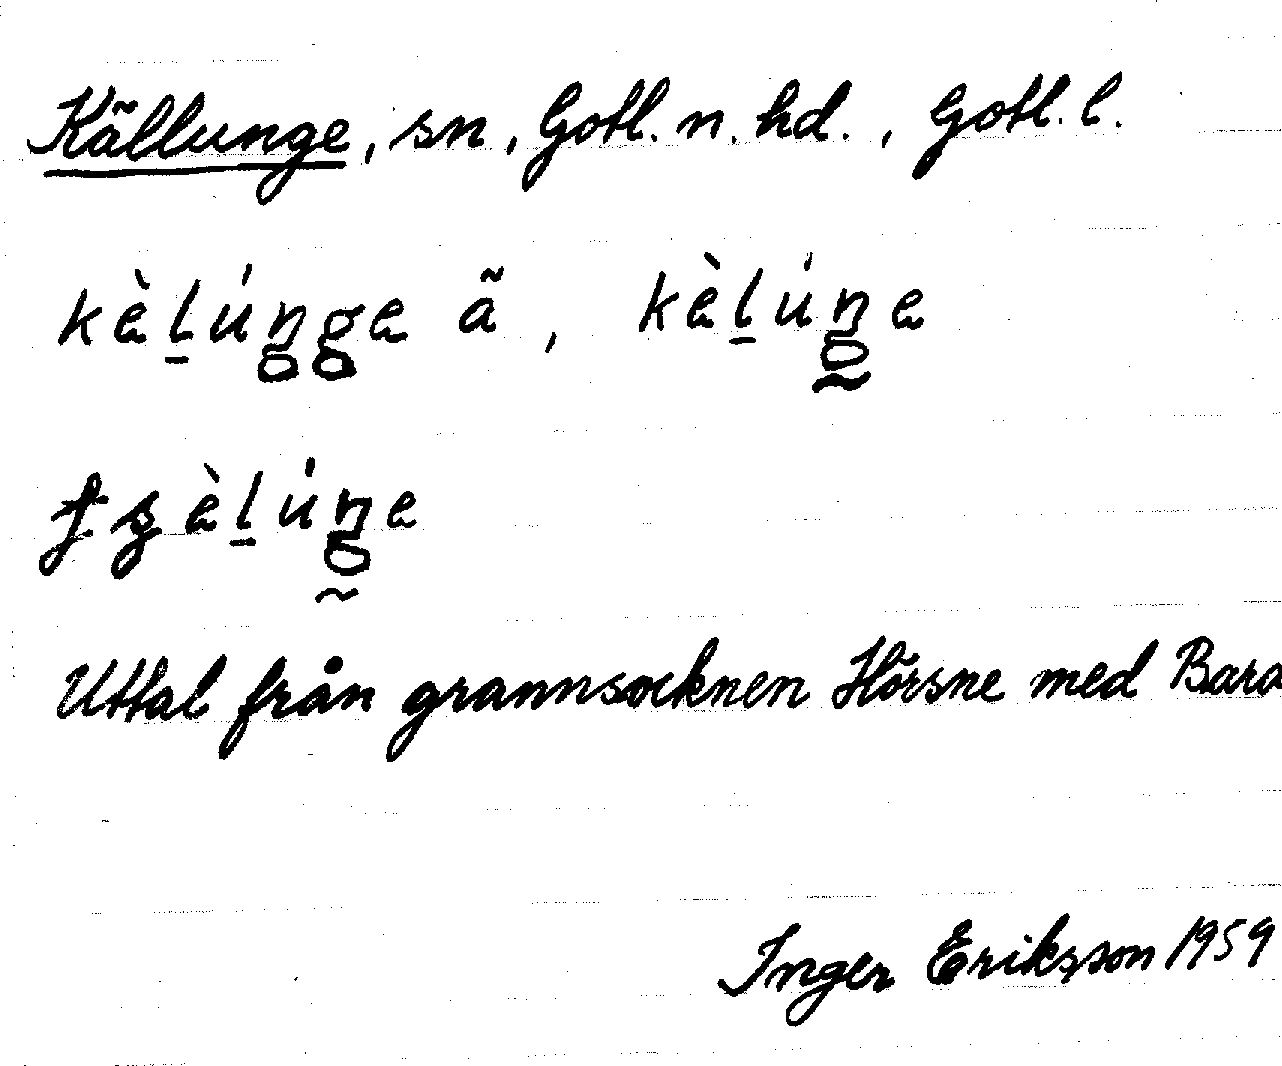 Källunge, sn, Gotl. n. hd., Gotl. l.
kèḻúŋge ã, kèḻúŋe
Uttal från grannsocknen Hörsne med Bara
Inger Eriksson 1959